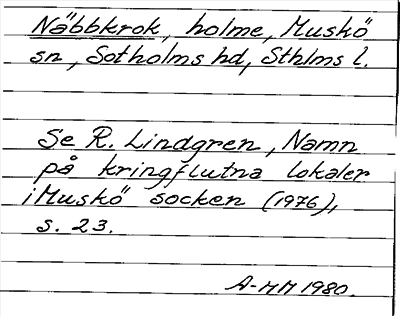 Näbbkrok, holme, Muskö
sn, Sotholms hd, Sthlms l.
Se R. Lindgren, Namn
på kringflutna lokaler
i Muskö socken (1976),
s. 23.
A-MM 1980.